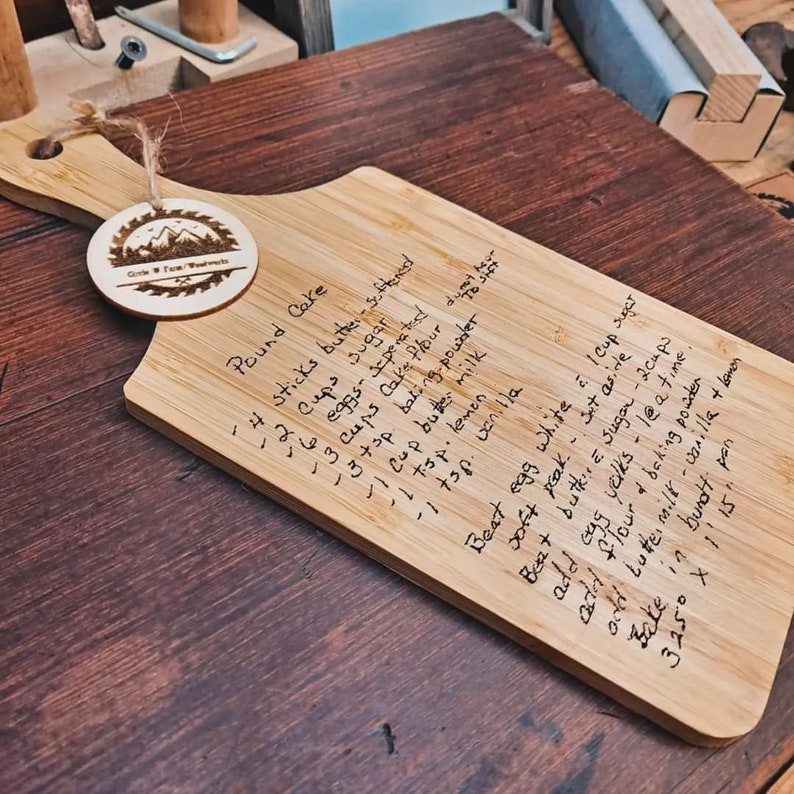 Circle W Farm/Woodworks
Pound Cake
- 4 sticks butter softened
- 2 cups sugar
- 6 eggs - seperated
- 3 cups cake flour
- 3 tsp baking powder
- 1 cup butter milk
- 1 tsp. lemon
- 1 tsp. vanilla
Beat egg white c̄ 1 cup sugar
soft peak - set aside
Beat butter c̄ sugar - 2 cups
add egg yolks - 1 @ a time.
add flour & baking powder
add butter milk - vanilla & lemon
Bake in bundt pan
325° x 1' 15"